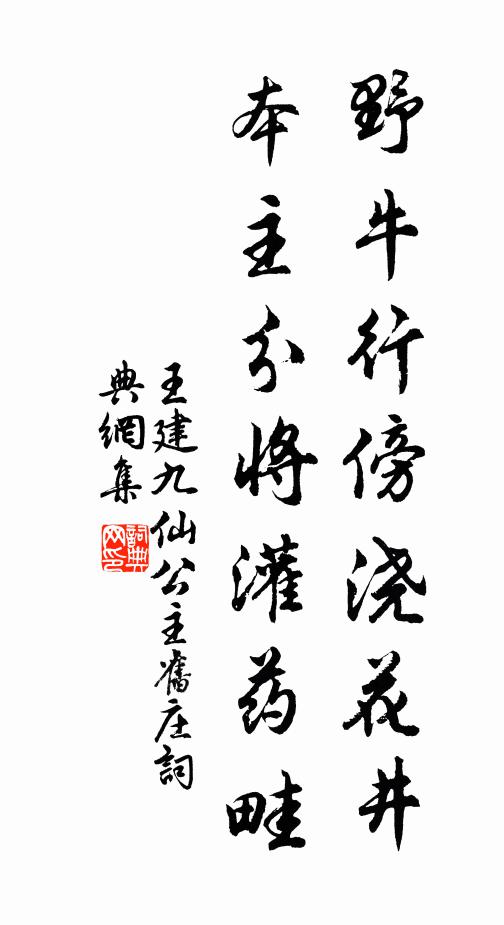 野牛行傍浇花井
本主分将灌药畦
王建九仙公主舊庄詞
典網集
詞典
网印